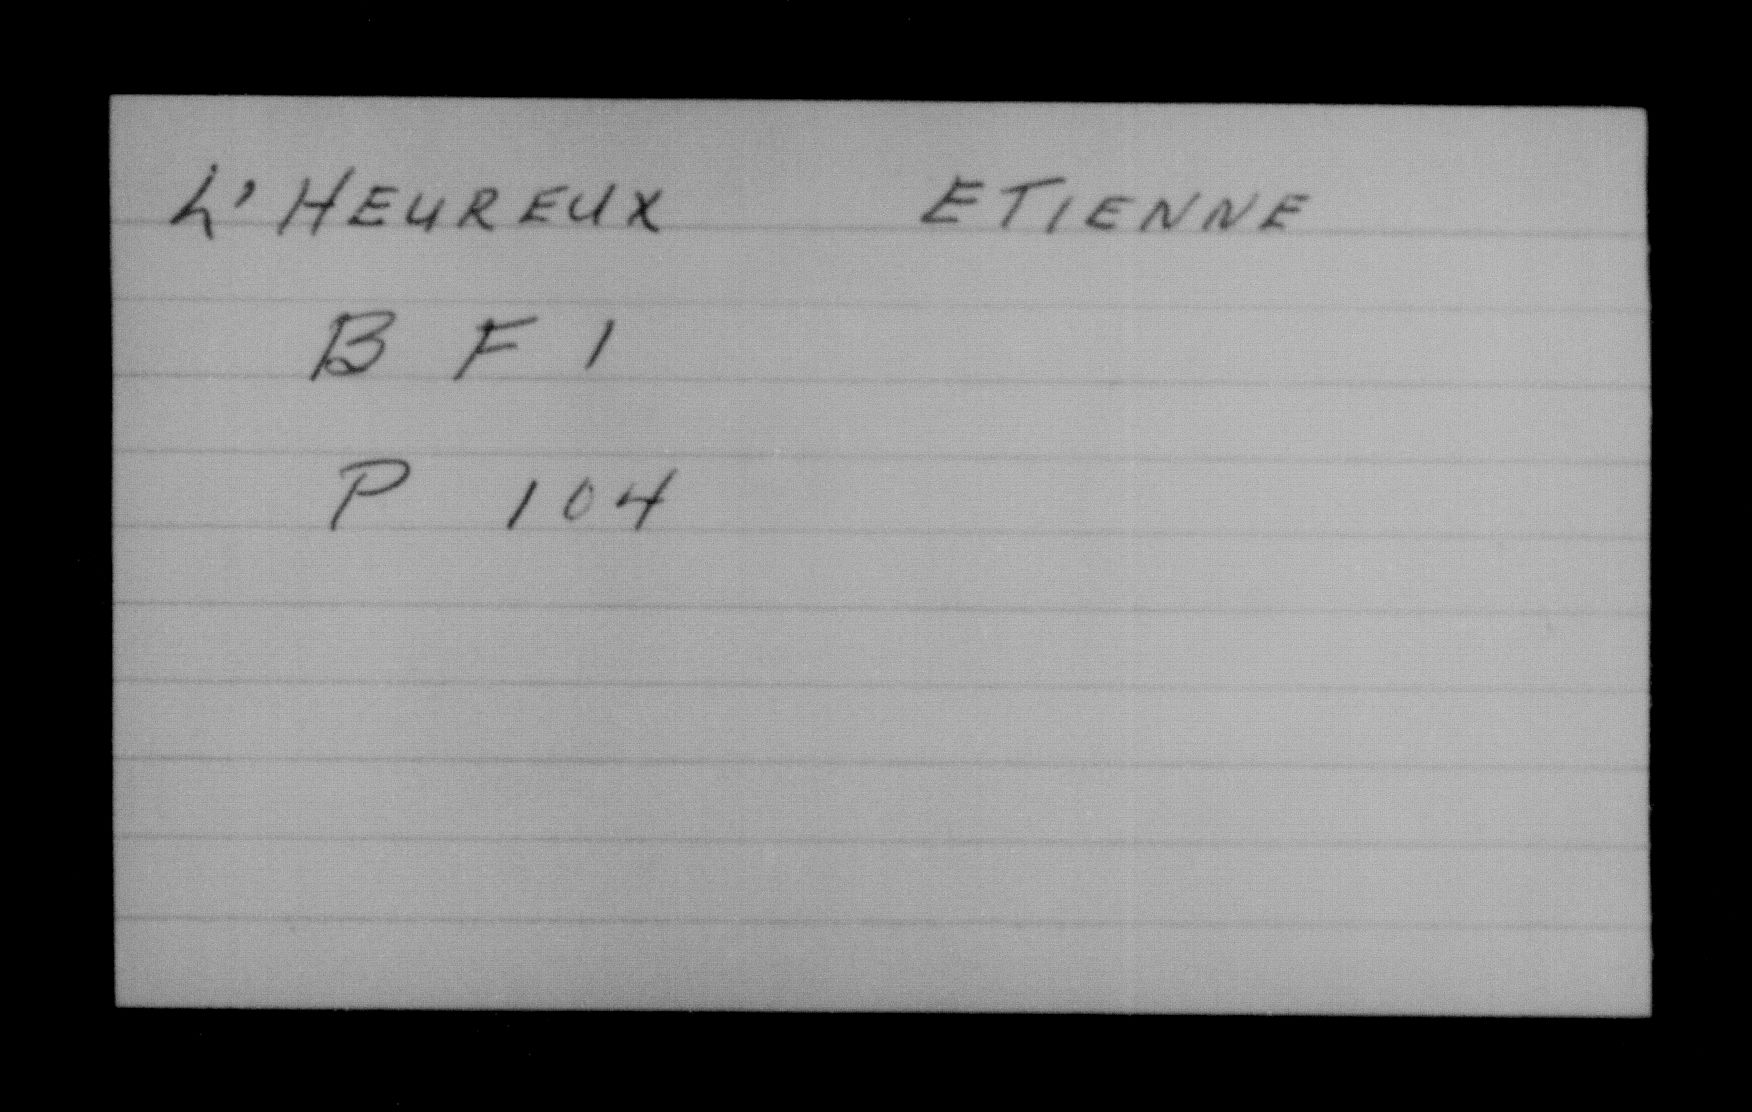 L'HEUREUX ETIENNE
B F 1
P 104